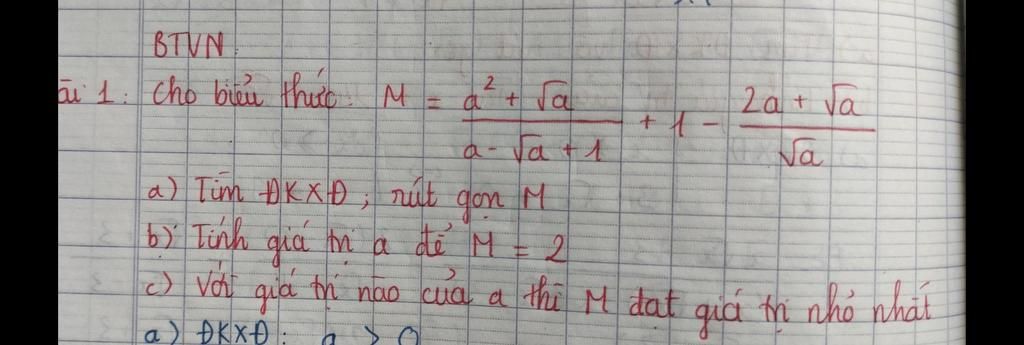 BTVN
ài 1: Cho biểu thức: M = \frac{a² + √a}{a - √a + 1} + 1 - \frac{2a + √a}{√a}
a) Tìm ĐKXĐ; rút gọn M
b) Tính giá trị a để M = 2
c) Với giá trị nào của a thì M đạt giá trị nhỏ nhất
a) ĐKXĐ: a > 0